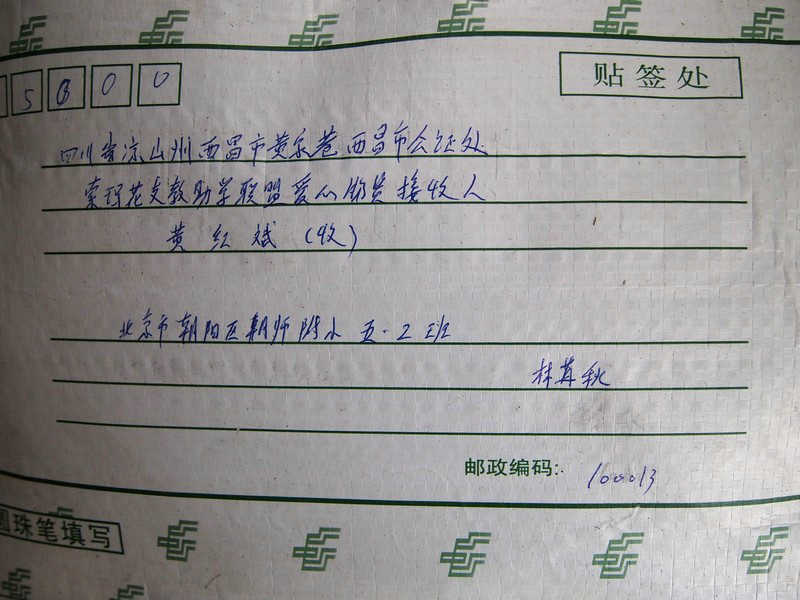 5000
贴签处
四川省凉山州西昌市黄家巷西昌市公证处
索玛花支教助学联盟爱心物资接收人
黄红斌（收）
北京市朝阳区朝师附小五·2班
林其秋
邮政编码:
100013
圆珠笔填写